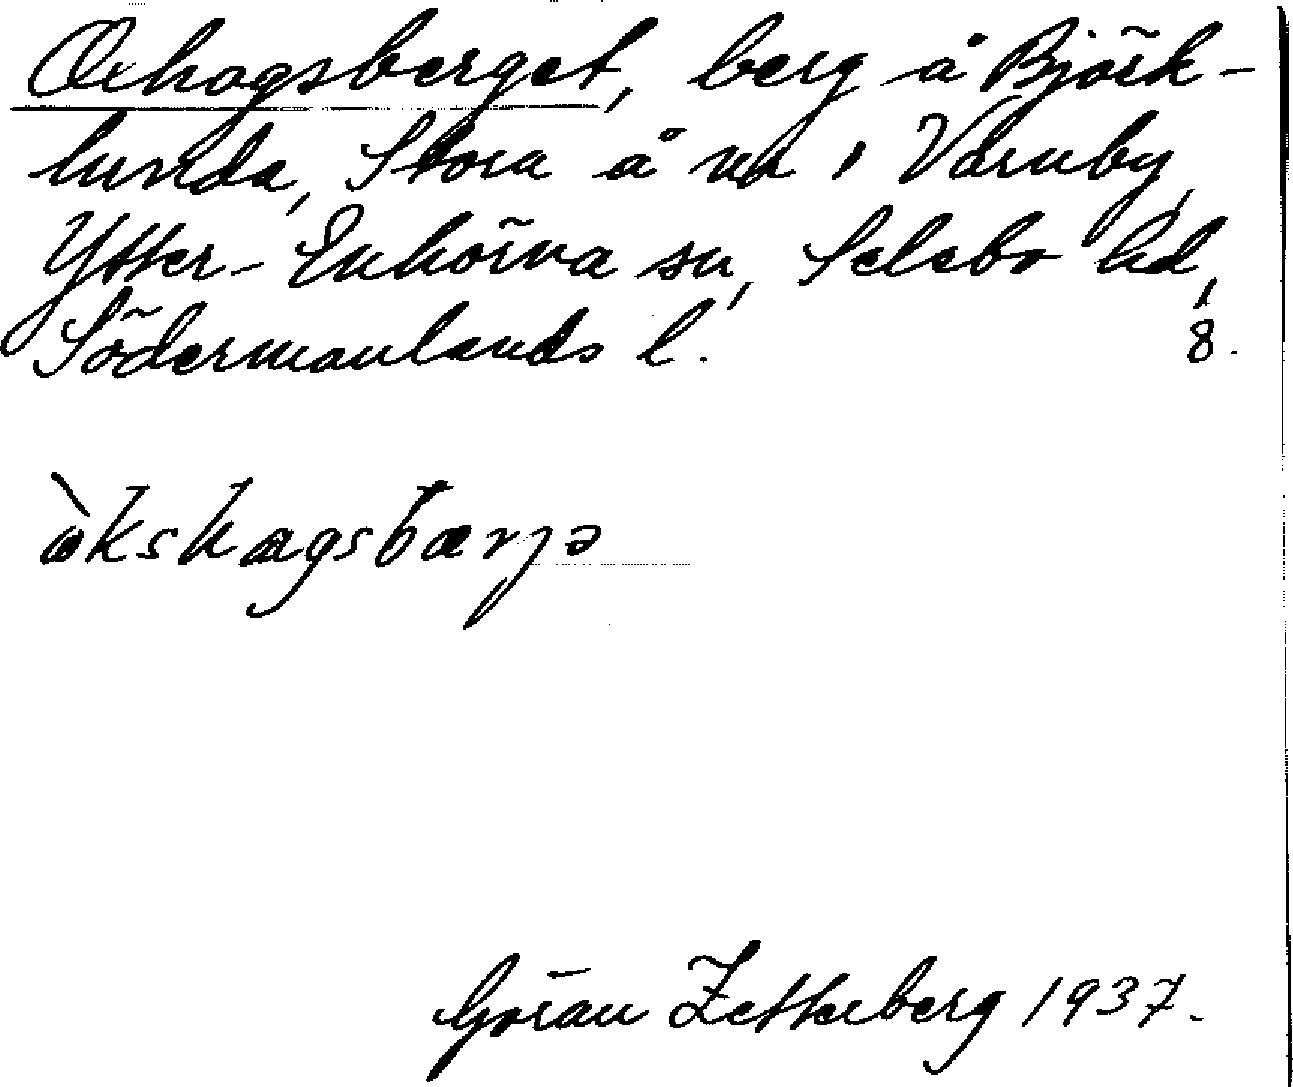 Oxhagsberget, berg å Björk-
lunda, Stora å utm i Vårnby,
Ytter-Enhörna sn, Selebo hd,
Södermanlands l. 8.
ὼkshagsbærjə
Göran Zetterberg 1937.